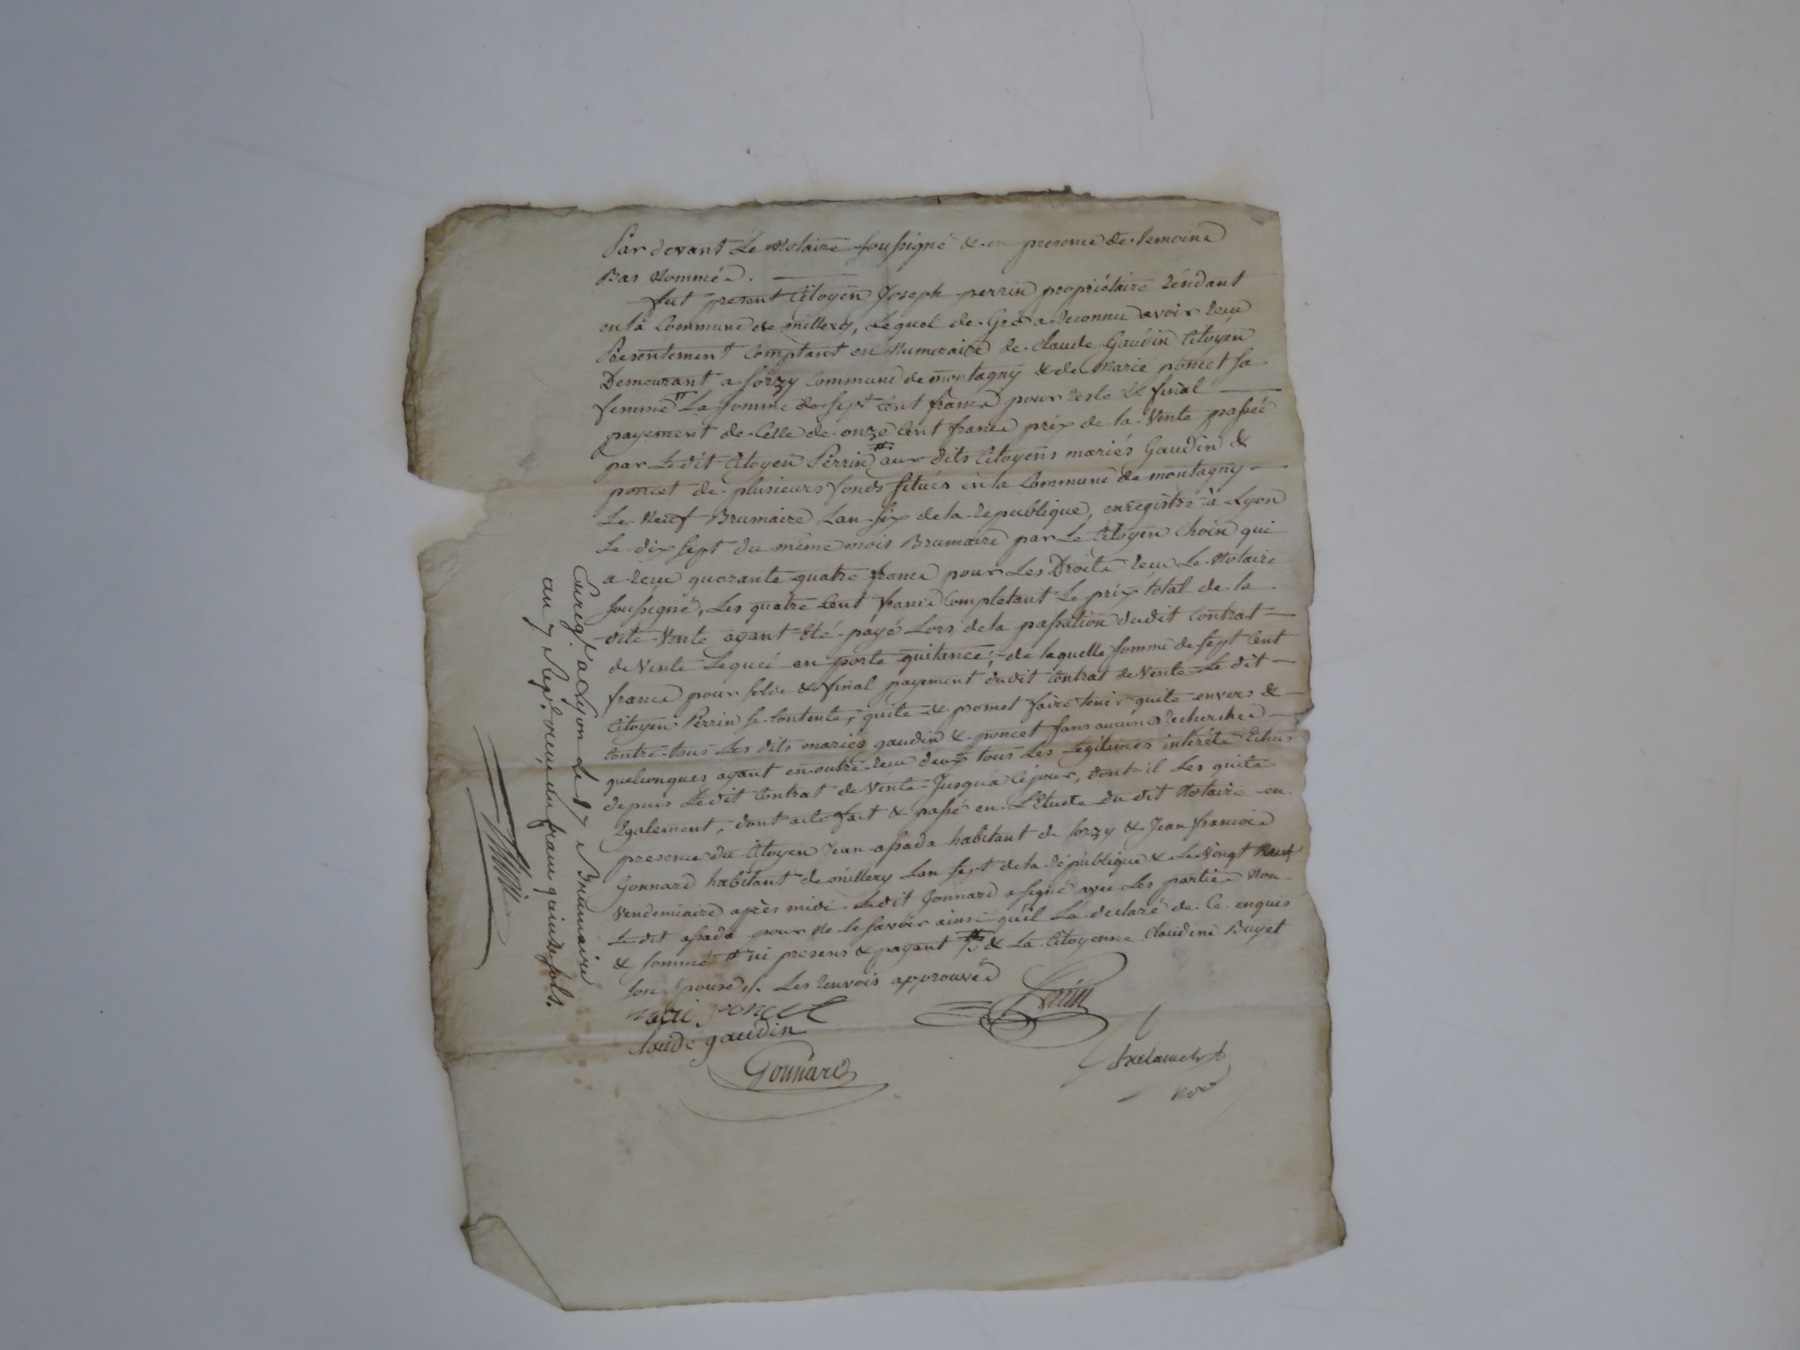 Par devant Le Notaire soussigné & en presence de temoins
Bas Nommés.
fut present Citoyen Joseph perrin propriétaire résidant
en la Commune de millery, Lequel de Gré a reconnu avoir reçu
Présentement Comptant en Numeraire de Claude Gaudin Citoyen
Demeurant a Sorzy Commune de montagny & de marie poncet sa
femme La somme de sept cent francs pour reste & final
payement de Celle de onze Cent francs prix de la Vente passée
par Ledit Citoyen Perrin aux dits Citoyens mariés Gaudin &
poncet de plusieurs fonds situés en la Commune de montagny
Le Neuf Brumaire L'an six de la republique, enregistré à Lyon
Le dix sept du même mois Brumaire par Le Citoyen Choin qui
a reçu quarante quatre francs pour Les Droits reçu Le Notaire
soussigné, Les quatre Cent francs Completant Le prix total de la
dite Vente ayant été payé Lors de la passation dudit Contrat
de Vente Lequel en porte quitance; de laquelle somme de sept Cent
francs pour solde & final payement dudit Contrat de Vente Le dit
Citoyen Perrin se Contente, quite & promet faire tenir quite envers &
Contre tous Les dits mariés gaudin & poncet sans aucunes recherches
quelconques ayant en outre reçu deux tous Les Legitimes intérêts Echus
depuis Ledit Contrat de Vente Jusqu'à Cejour, dont il Les quite
Egalement, dont acte fait & passé en L'étude du dit Notaire en
presence du Citoyen Jean assada habitant de Sorzy & Jean francois
Gonnard habitant de millery L'an sept de la république & Le Vingt Neuf
Vendemiaire après midi. Ledit Gonnard a signé avec Les parties Non
Ledit assada pour ne le savoir ainsi qu'il L'a declaré de Ce enquis
& sommé ici presens & payant & La Citoyenne Claudine Buyet
son Epouse Les renvois approuvés
marie poncet
Claude gaudin
Perrin
Gonnard
Not
Enregt. a Lyon Le 17 Brumaire
an 7 Rep. reçu du franc quinze sols.